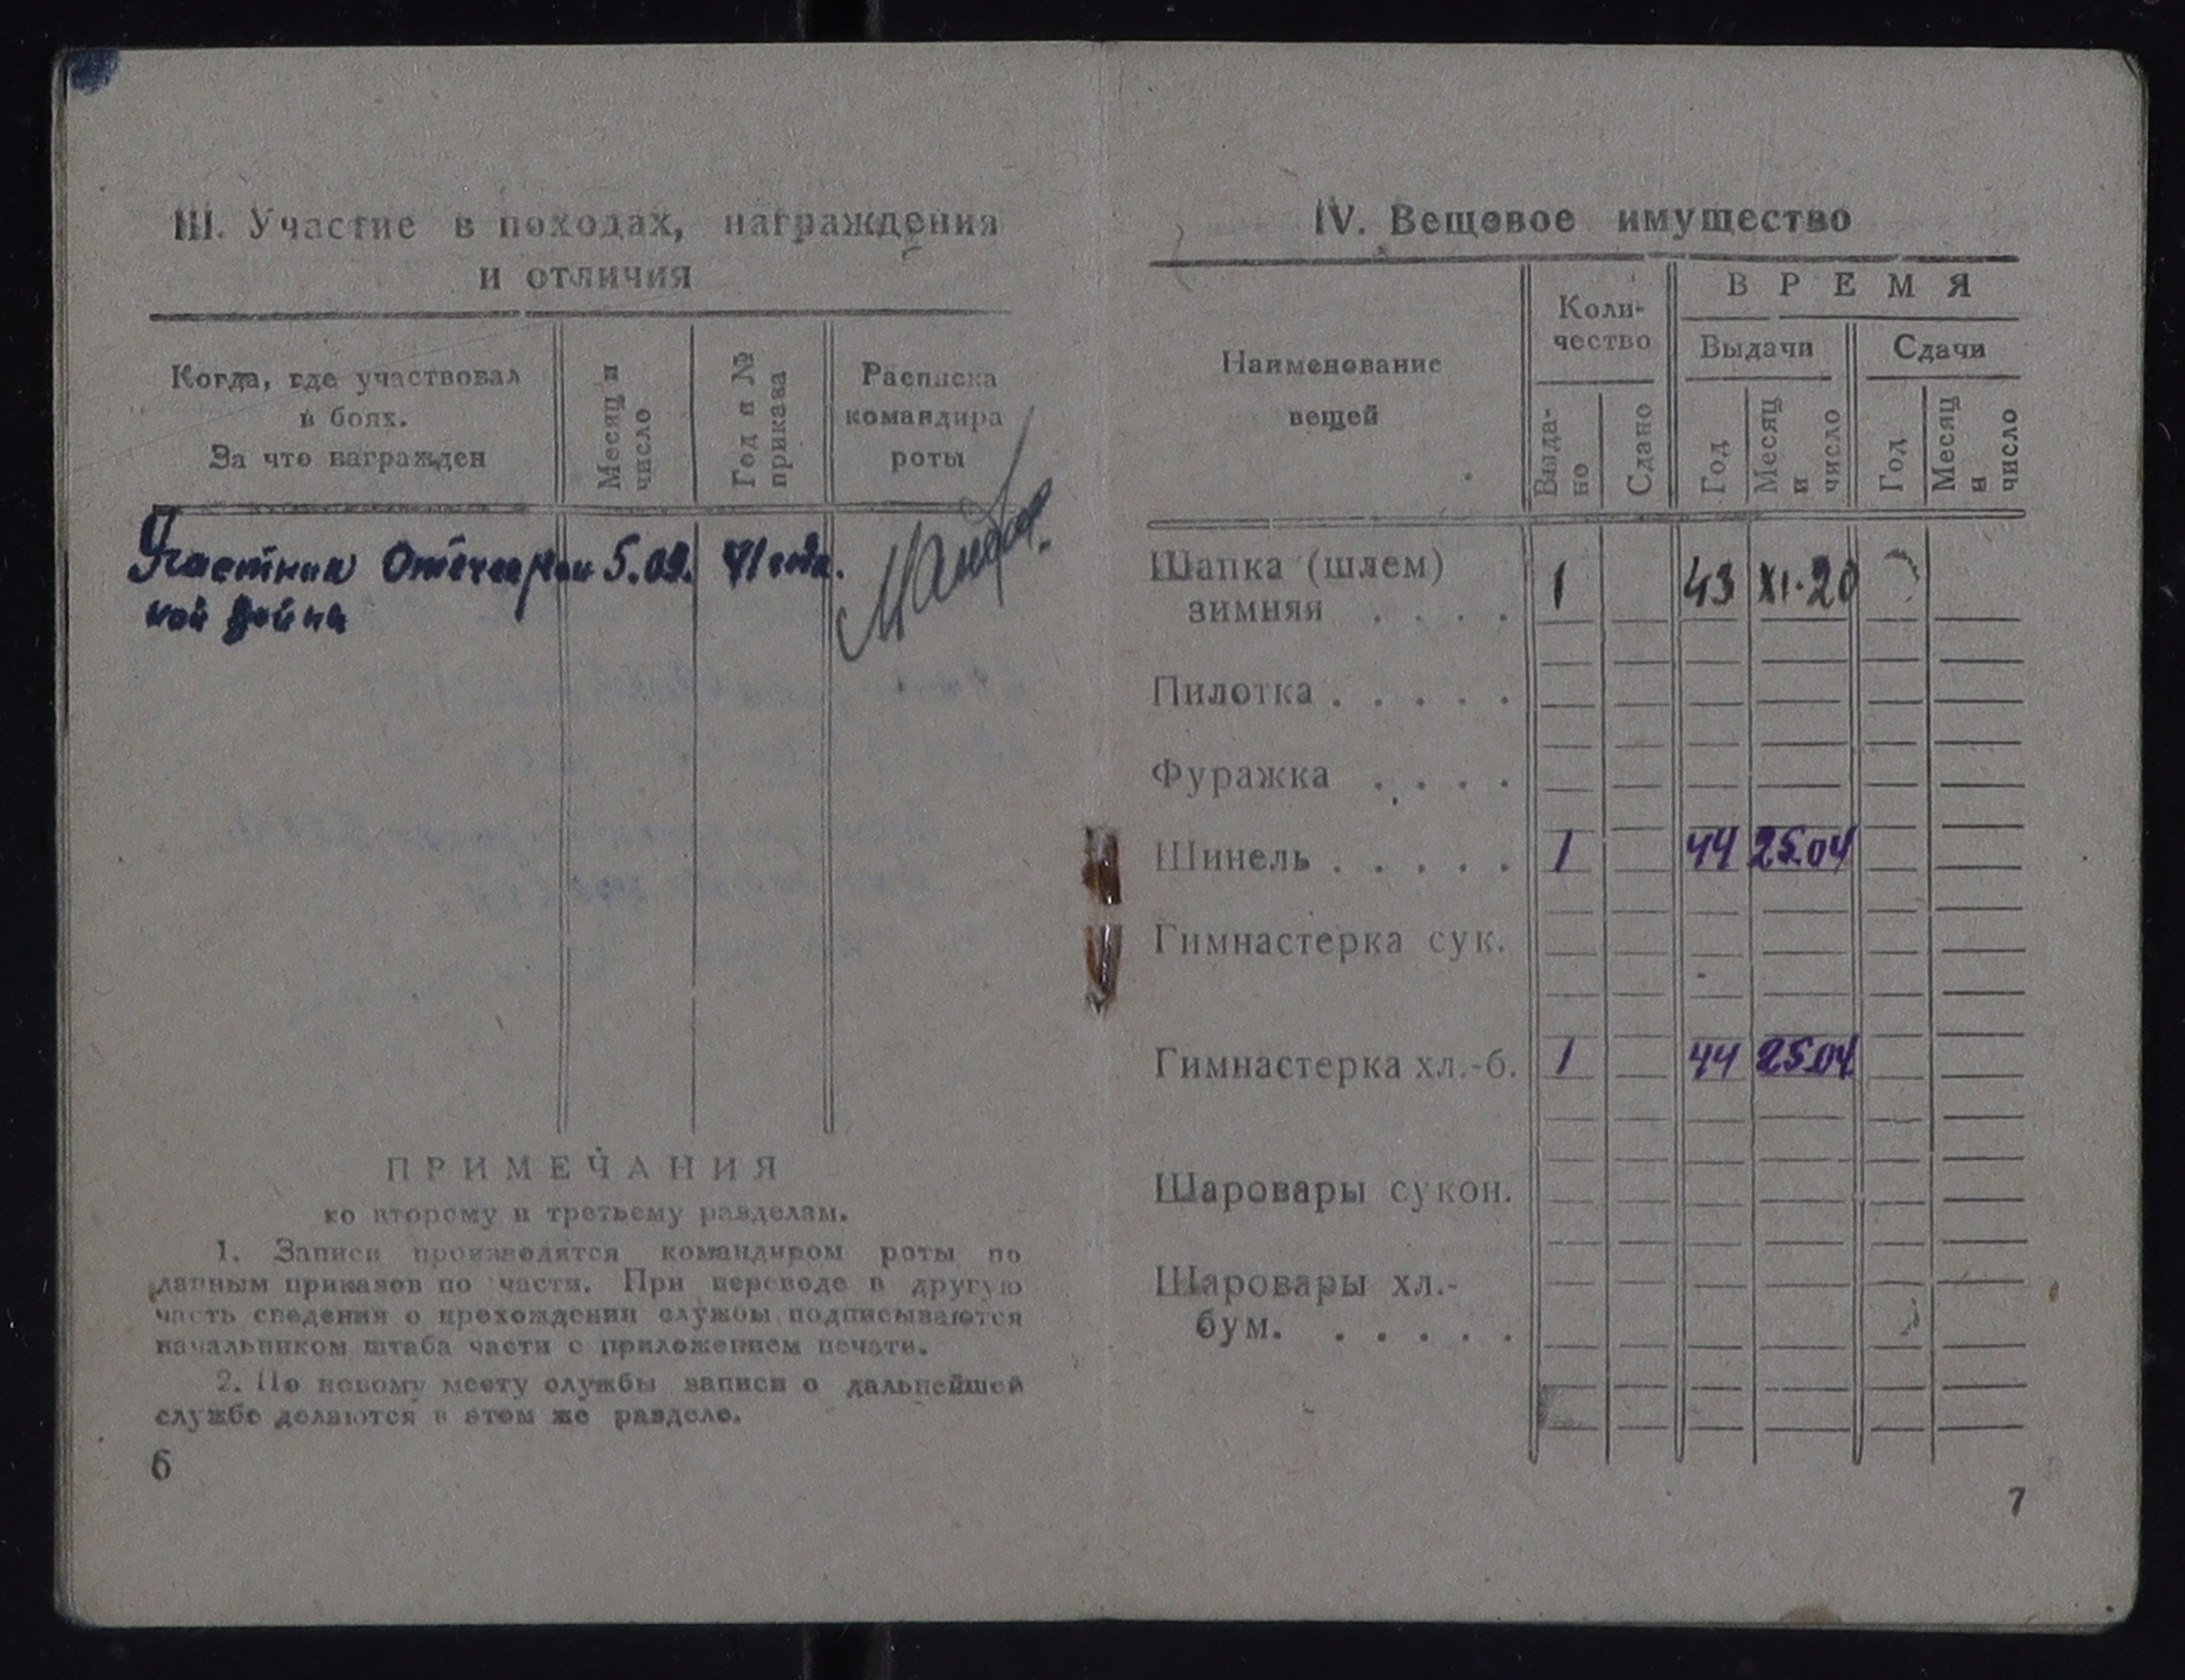 III. Участие в походах, награждения
и отличия
Когда, где участвовал
в боях.
За что награжден
Месяц и
число
Год и №
приказа
Расписка
командира
роты
Участник Отечествен 5.09. 41 года.
ной войны
ПРИМЕЧАНИЯ
ко второму и третьему разделам.
1. Записи производятся командиром роты по
данным приказов по части. При переводе в другую
часть сведения о прохождении службы подписываются
начальником штаба части с приложением печати.
2. По новому месту службы записи о дальнейшей
службе делаются в этом же разделе.
6
IV. Вещевое имущество
Наименование
вещей
Коли-
чество
ВРЕМЯ
Выдачи
Сдачи
Выда-
но
Сдано
Год
Месяц
и
число
Год
Месяц
и
число
Шапка (шлем)
зимняя . . . . 1 43 XI.20
Пилотка . . . . .
Фуражка . . . .
Шинель . . . . . 1 44 25.04
Гимнастерка сук.
Гимнастерка хл.-б. 1 44 25.04
Шаровары сукон.
Шаровары хл.-
бум. . . . . .
7